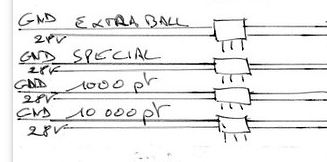 GND EXTRA BALL
28V
GND SPECIAL
28V
GND 1000 pt
28V
GND 10 000 pt
28V